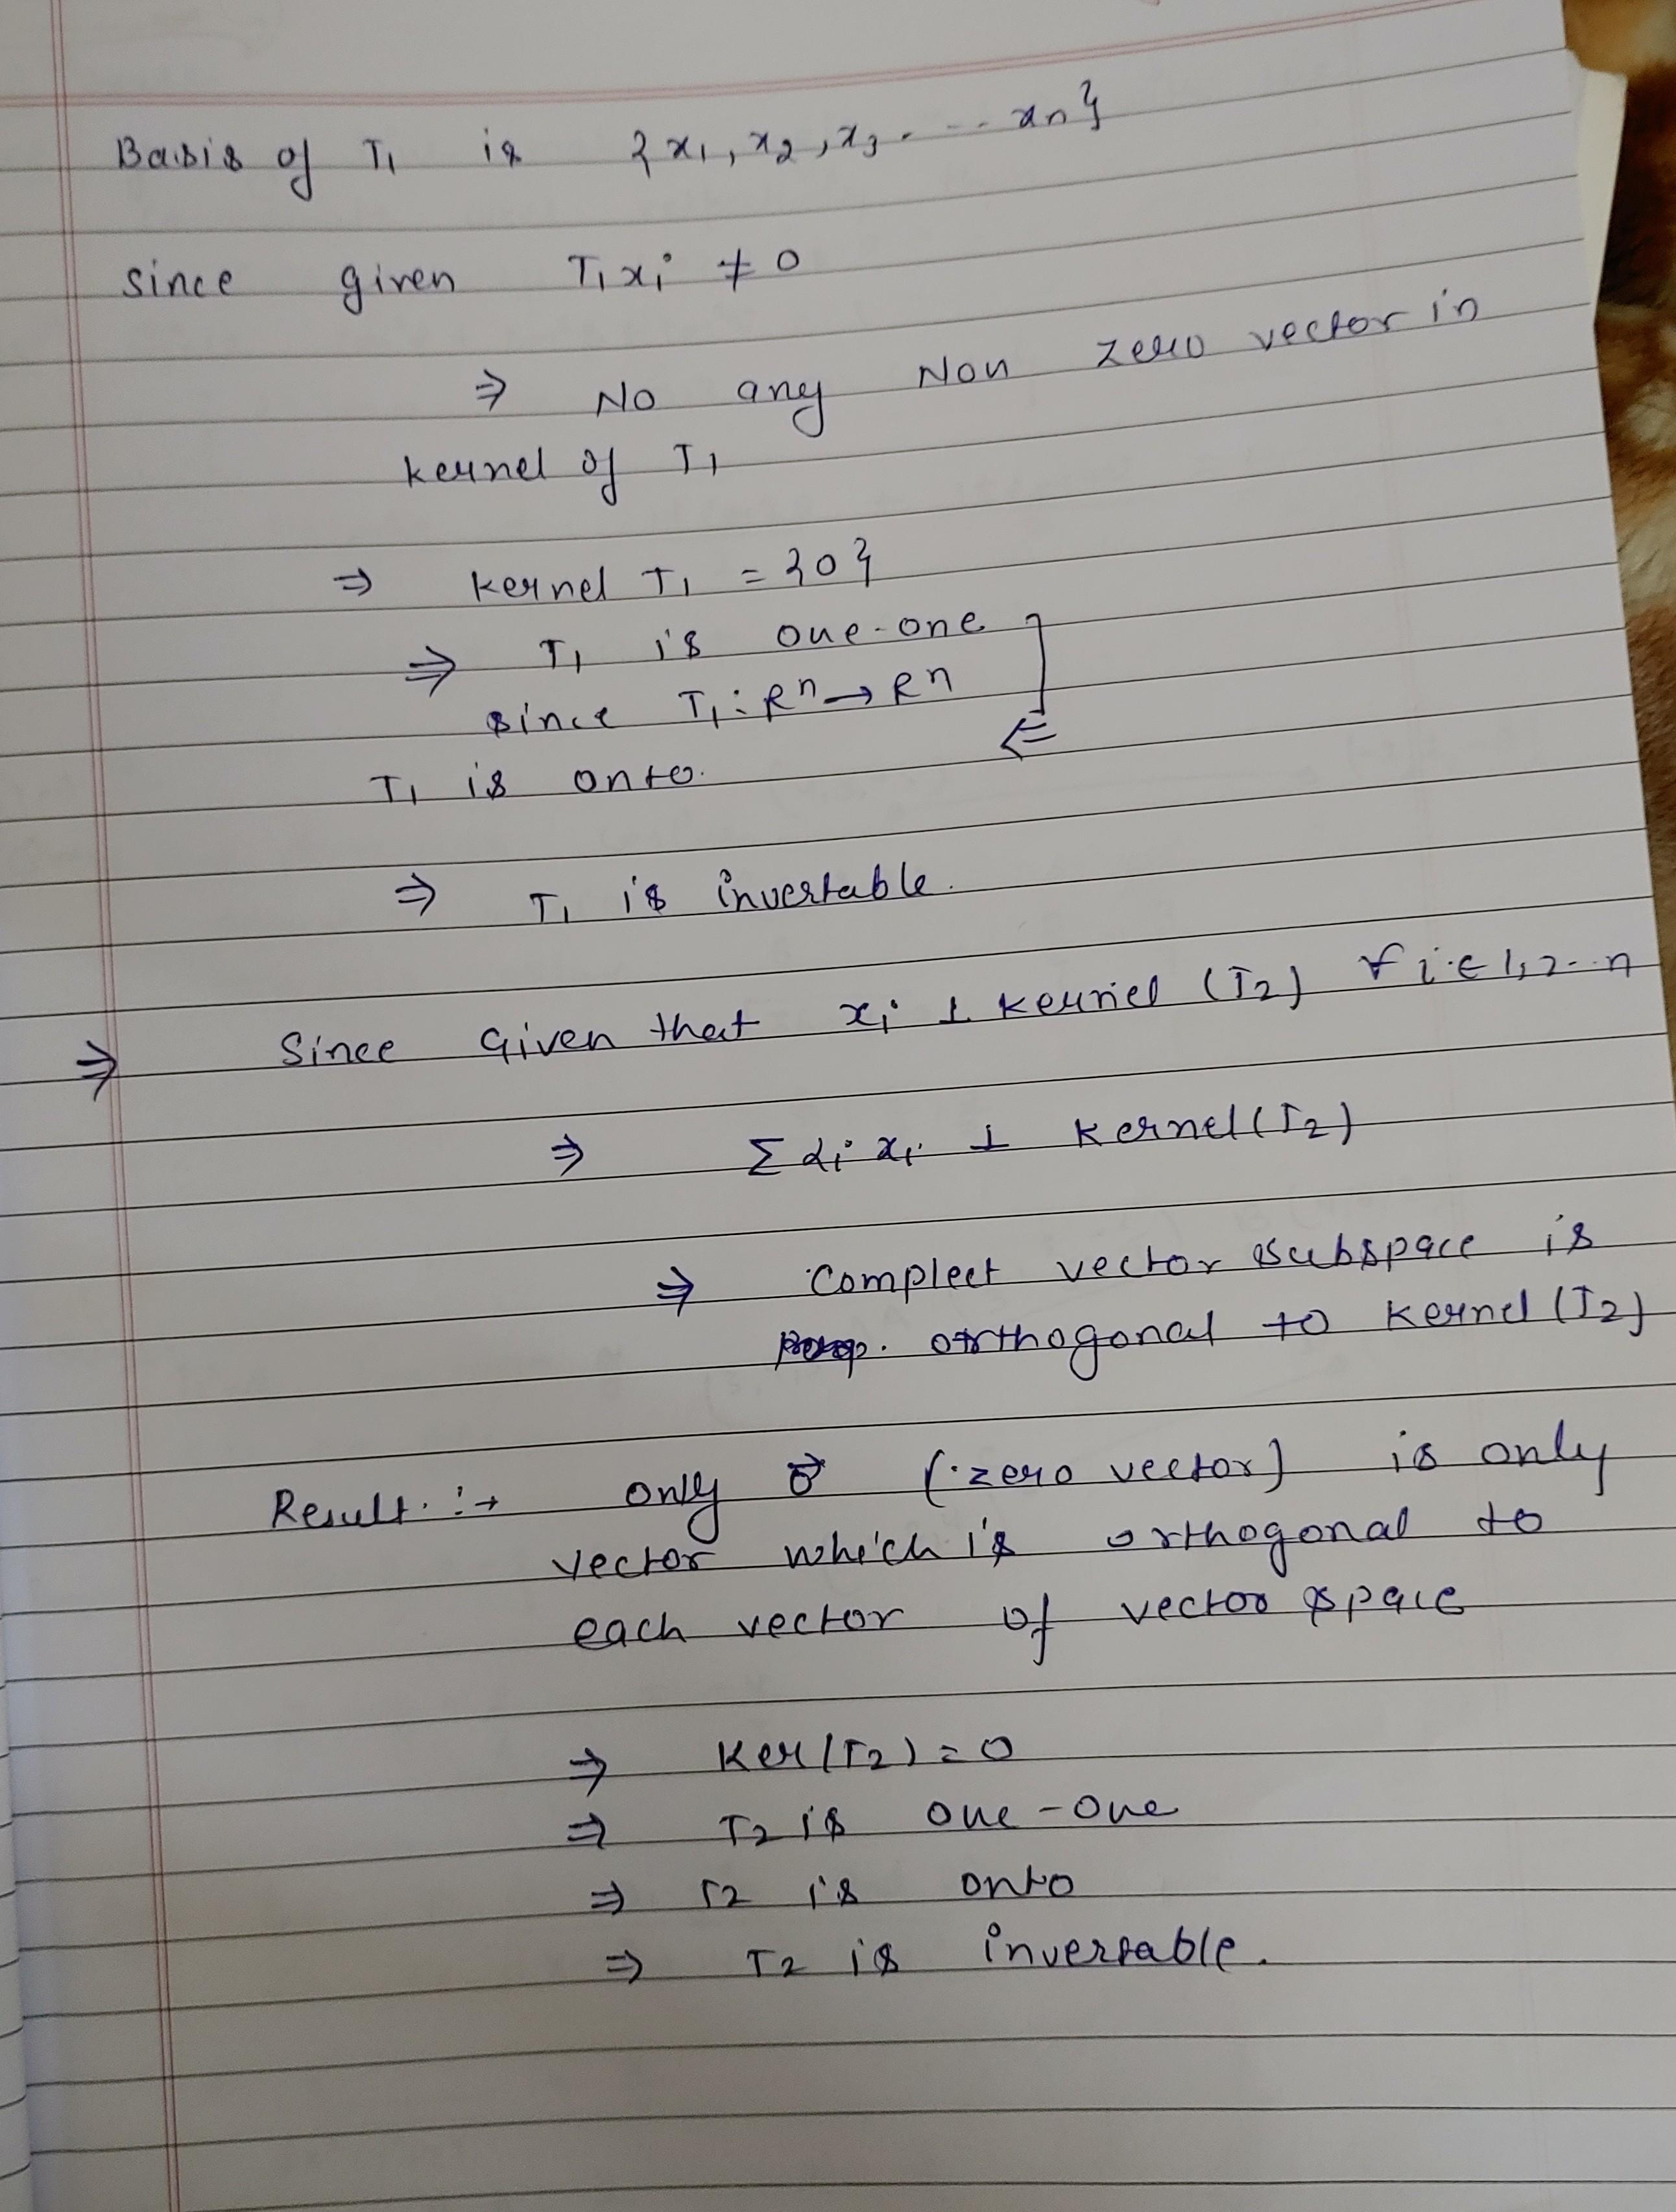 Basis of T₁ is {x₁, x₂, x₃ . - - - xn}
since given T₁xi ≠ 0
⇒ No any Non zero vector in
kernel of T₁
⇒ kernel T₁ = {0}
⇒ T₁ is one-one
since T₁: Rⁿ → Rⁿ
T₁ is onto.
⇒ T₁ is invertable.
⇒ Since Given that xi ⊥ kernel (T₂) ∀ i ∈ 1,2-.n
⇒ Σ αi xi ⊥ Kernel (T₂)
⇒ Compleet vector subspace is
orthogonal to Kernel (T₂)
Result :→ only 0⃗ (zero vector) is only
vector which is orthogonal to
each vector of vector space
⇒ Ker(T₂) = 0
⇒ T₂ is one-one
⇒ T₂ is onto
⇒ T₂ is invertable.